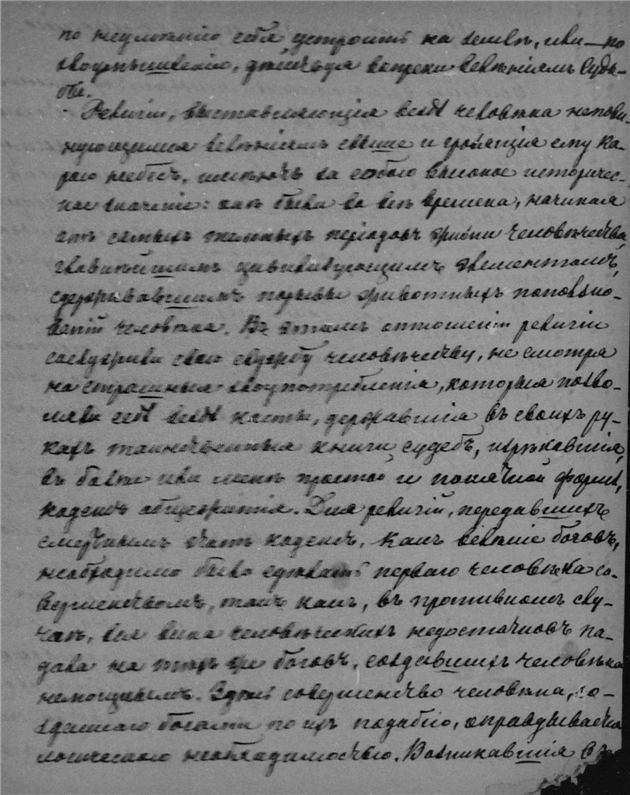 по неумѣнію себя устроить на землѣ, или — по
злоумышленію, дѣйствуя вопреки велѣніямъ Судь-
бы.
Религіи, выставляющія вездѣ человѣка непови-
нующимся велѣніямъ свыше и грозящія ему ка-
рою небесъ, имѣютъ за собою великое историчес-
кое значеніе: онѣ были во всѣ времена, начиная
отъ самыхъ темныхъ періодовъ жизни человѣчества,
главнѣйшимъ цивилизующимъ элементомъ,
сдерживавшимъ порывы животныхъ поползно-
веній человѣка. Въ этомъ отношеніи религіи
сослужили свою службу человѣчеству, не смотря
на страшныя злоупотребленія, которыя позво-
ляли себѣ вездѣ касты, державшія въ своихъ ру-
кахъ таинственныя книги судебъ, изрѣкавшія,
въ болѣе или менѣе простой и понятной формѣ,
кодексъ общежитія. Для религій, передавшихъ
смертнымъ этотъ кодексъ, какъ велѣніе боговъ,
необходимо было сдѣлать перваго человѣка со-
вершенствомъ, такъ какъ, въ противномъ слу-
чаѣ, вся вина человѣческихъ недостатковъ па-
дала на тѣхъ же боговъ, создавшихъ человѣка
немощнымъ. Здѣсь совершенство человѣка, со-
зданнаго богами по ихъ подобію, оправдывается
логическою необходимостью. Возникавшія